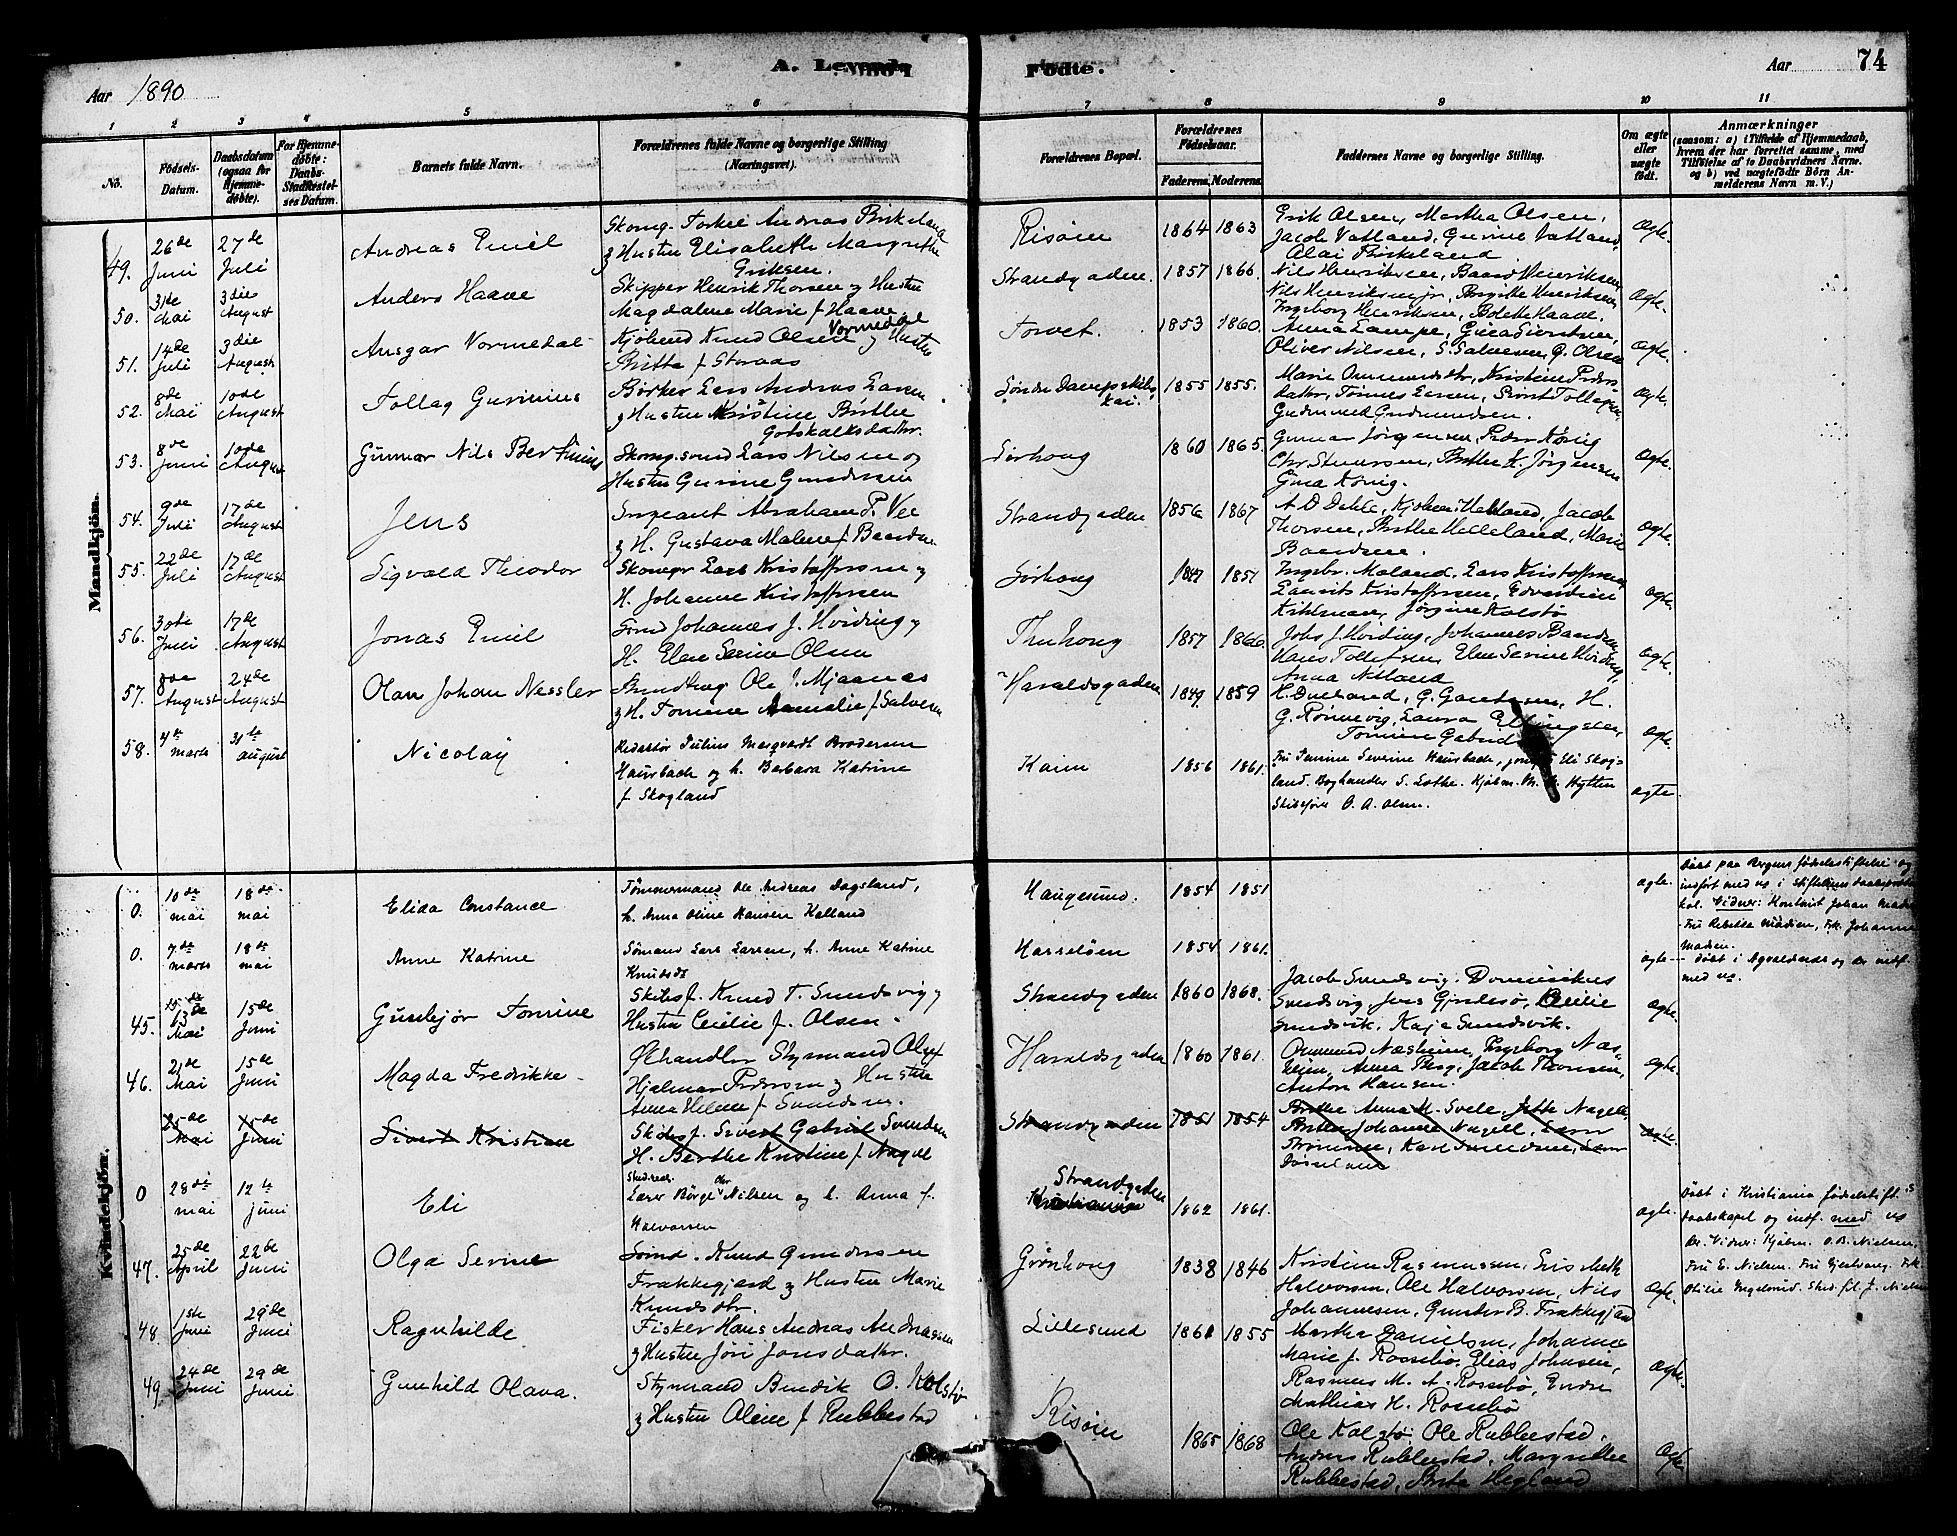 Aar 1890
A. Levende
Fødte.
Aar
74
1 2 3 4 5 6 7 8 9 10 11
No.
Fødsels-Datum.
Daabsdatum (ogsaa for Hjemme-døbte).
For Hjemme-døbte: Daabs-Stadfæstel-ses Datum.
Barnets fulde Navn.
Forældrenes fulde Navne og borgerlige Stilling (Næringsvei).
Forældrenes Bopæl.
Forældrenes Fødselsaar.
Faderens. Moderens.
Faddernes Navne og borgerlige Stilling.
Om ægte eller uægte født.
Anmærkninger
(saasom: a) i Tilfælde af Hjemmedaab, hvem der har forrettet samme, med Tilføielse af to Daabsvidners Navne. og b) ved uægtefødte Børn Anmelderens Navn m. V.)
Mandkjøn.
49. 26de Juni 27de Juli Andreas Emil
Skomg. Torkel Andreas Birkeland
& Hustru Elisabeth Margrethe
Eriksen.
Risøen 1864 1863
Erik Olsen, Martha Olsen,
Jacob Vatland, Gurine Vatland,
Olai Birkeland
Ægte.
50. 31de Mai 3die August Anders Haave
Skipper Henrik Thorsen og Hustru
Magdalene Marie f. Haave
Strandgaden. 1857 1866.
Nils Henriksen, Baard Henriksen,
Nils Henriksen jr, Birgithe Henriksen,
Ingeborg Henriksen, Bolette Haave.
Ægte.
51. 14de Juli 3die August Ansgar Vormedal
Kjøbmd Knud Olsen Vormedal og Hustru
Britta f. Storaas
Torvet. 1853 1860.
Anna Lampe, Gina Sivertsen,
Oliver Nilsen, S. Salvesen, G. Olsen
Ægte.
52. 8de Mai 10de August Tollag Gurinius
Bødker Lars Andreas Larsen
& Hustru Kristine Birthe
Gotskalksdattr.
Søndre Dampskibskai. 1855 1855.
Marie Ommundsdtr, Kristine Peders-
datter, Tønnes Larsen, Sivert Tollagsen,
Gudmund Gudmundsen.
Ægte.
53. 8de Juni 10de August Gunnar Nils Bertinius
Skomg.svend Lars Nilsen og
Hustru Gurine Gundersen
Sørhoug 1860 1865.
Gunnar Jørgensen, Peder König
Chr Stuersen, Birthe K. Jørgensen
Gina König.
Ægte.
54. 9de Juli 17de August Jens
Sergeant Abraham P. Vee
& H. Gustava Malene f. Baardsen
Strandgaden 1856 1867
A. D. Dekke, Kjøbm. Helland, Jacob
Thorsen, Birthe Helleland, Marie
Baardsen.
Ægte.
55. 22de Juli 17de August Sigvald Theodor
Skomgr Lars Kristoffersen og
H. Johanne Kristoffersen
Sørhoug 1847 1851
Ingebr. Moland, Lars Kristoffersen,
Laurits Kristoffersen, Edvardine
Jørgine Kalstø
Ægte.
56. 30te Juli 17de August Jonas Emil
Sømd Johannes J. Hviding &
H. Elen Serine Olsen
Thuhoug 1857 1866.
Jobs J. Hviding, Johannes Baardsen
Hans Tollefsen, Elen Serine Hviding,
Anna Nilland
Ægte.
57. 8de August 24de August Olav Johan Nessler
Ole J. Mjaanes
& H. Tomine Amalie f. Salvesen
Haraldsgaden 1849 1859
K. Dueland, G. Gautesen, H.
G. Rønnevig, Laura Ellingsen,
Tomine Gabriel
Ægte.
58. 4de marts 31te august Nicolay
Redaktør Julius Marqvardt Brodersen
Haurbach og h. Barbara Katrine
f. Skogland
Kaien 1856 1861.
Fru Jenine Severine Haurbach, Eli Skog-
land. Boghandler S. Lothe. Kjøbm. Hytten
Skibsfører O. A. Olsen.
ægte
Kvindekjøn.
0. 10de mai 18de mai Elida Constance
Tømmermand Ole Andreas Dagsland,
h. Anna Oline Hansen Kalland
Haugesund. 1854 1851
ægte.
Døbt paa Bergens fødselsstiftelse og
indført med no i stiftelsens daabsproto-
kol. Vidner: Kontorist Johan Madsen
Fru Rebekka Madsen, Frk. Johanne
Madsen.
0. 7de marts 18de mai Anne Katrine
Sømand Lars Larsen, h. Anne Katrine
Knudsdt
Hasseløen 1854 1861.
ægte
døbt i Agvaldsnes og der indf.
med no.
45. 13de Mai 15de Juni Gunbjør Tomine
Skibsf. Knud T. Sundsvig &
Hustru Cecilie f. Olsen.
Strandgaden 1860 1868.
Jacob Sundsvig, Dominikus
Sundsvig, Jens Gjerdesø, Cecilie
Sundsvik, Kaja Sundsvik.
Ægte.
46. 21de Mai 15de Juni Magda Fredrikke
Ølhandler Styrmand Oluf
Hjalmar Pedersen & Hustru
Anna Helene f. Svendsen.
Haraldsgaden 1860 1861.
Ommund Næsheim, Ingeborg Næs-
heim, Anna Berg, Jacob Thomsen,
Anton Hansen.
Ægte.
25de Mai 15de Juni Sivert Kristian
Skibsf. Sivert Gabriel Svendsen
H. Berthe Kristine f. Nagel
Strandgaden 1851 1854
Birthe Anna M. Svele, Jette Nagell,
Johanne Nagell, Lars
Brømme, Karl Svendsen,
Ægte.
0 28de mai 12te juni Eli
Skibsreder
Lærer Børge Chr Nilsen og h. Anna f.
Halvorsen
Strandgaden
Kristiania 1862 1861.
ægte.
Døbt i Kristiania fødselsstift.s
daabskapel og indf. med no
Vidner: Kjøbm. O. B. Nielsen,
Fru E. Nielsen. Fru Frk.
Othilie Stud. fil. J. Nielsen
47. 25de April 22de Juni Olga Serine
Sømd. Knud Gundersen
Frakkegjærd & Hustru Marie
Knudsdtr.
Grønhoug 1838 1846
Kristine Rasmussen, Lisabeth
Halvorsen, Ole Halvorsen, Nils
Johannesen, Gunder B. Frakkegjærd
Ægte.
48 1ste Juni 29de Juni Ragnhilde
Fisker Hans Andreas Andreassen
& Hustru Jøri Jonsdattr.
Lillesund 1861 1855
Marthe Danielsen, Johanne
Marie f. Rossebø, Elias Johnsen,
Rasmus M. A. Rossebø, Endre
Mathias H. Rossebø
Ægte.
49. 24de Juni 29de Juni Gunhild Olava.
Styrmand Bendik O. Kalstø
& Hustru Oline f. Rubbestad
Risøen 1865 1868
Ole Kalstø, Ole Rubbestad,
Anders Rubbestad, Margrethe
Rubbestad, Berta Hegland
Ægte